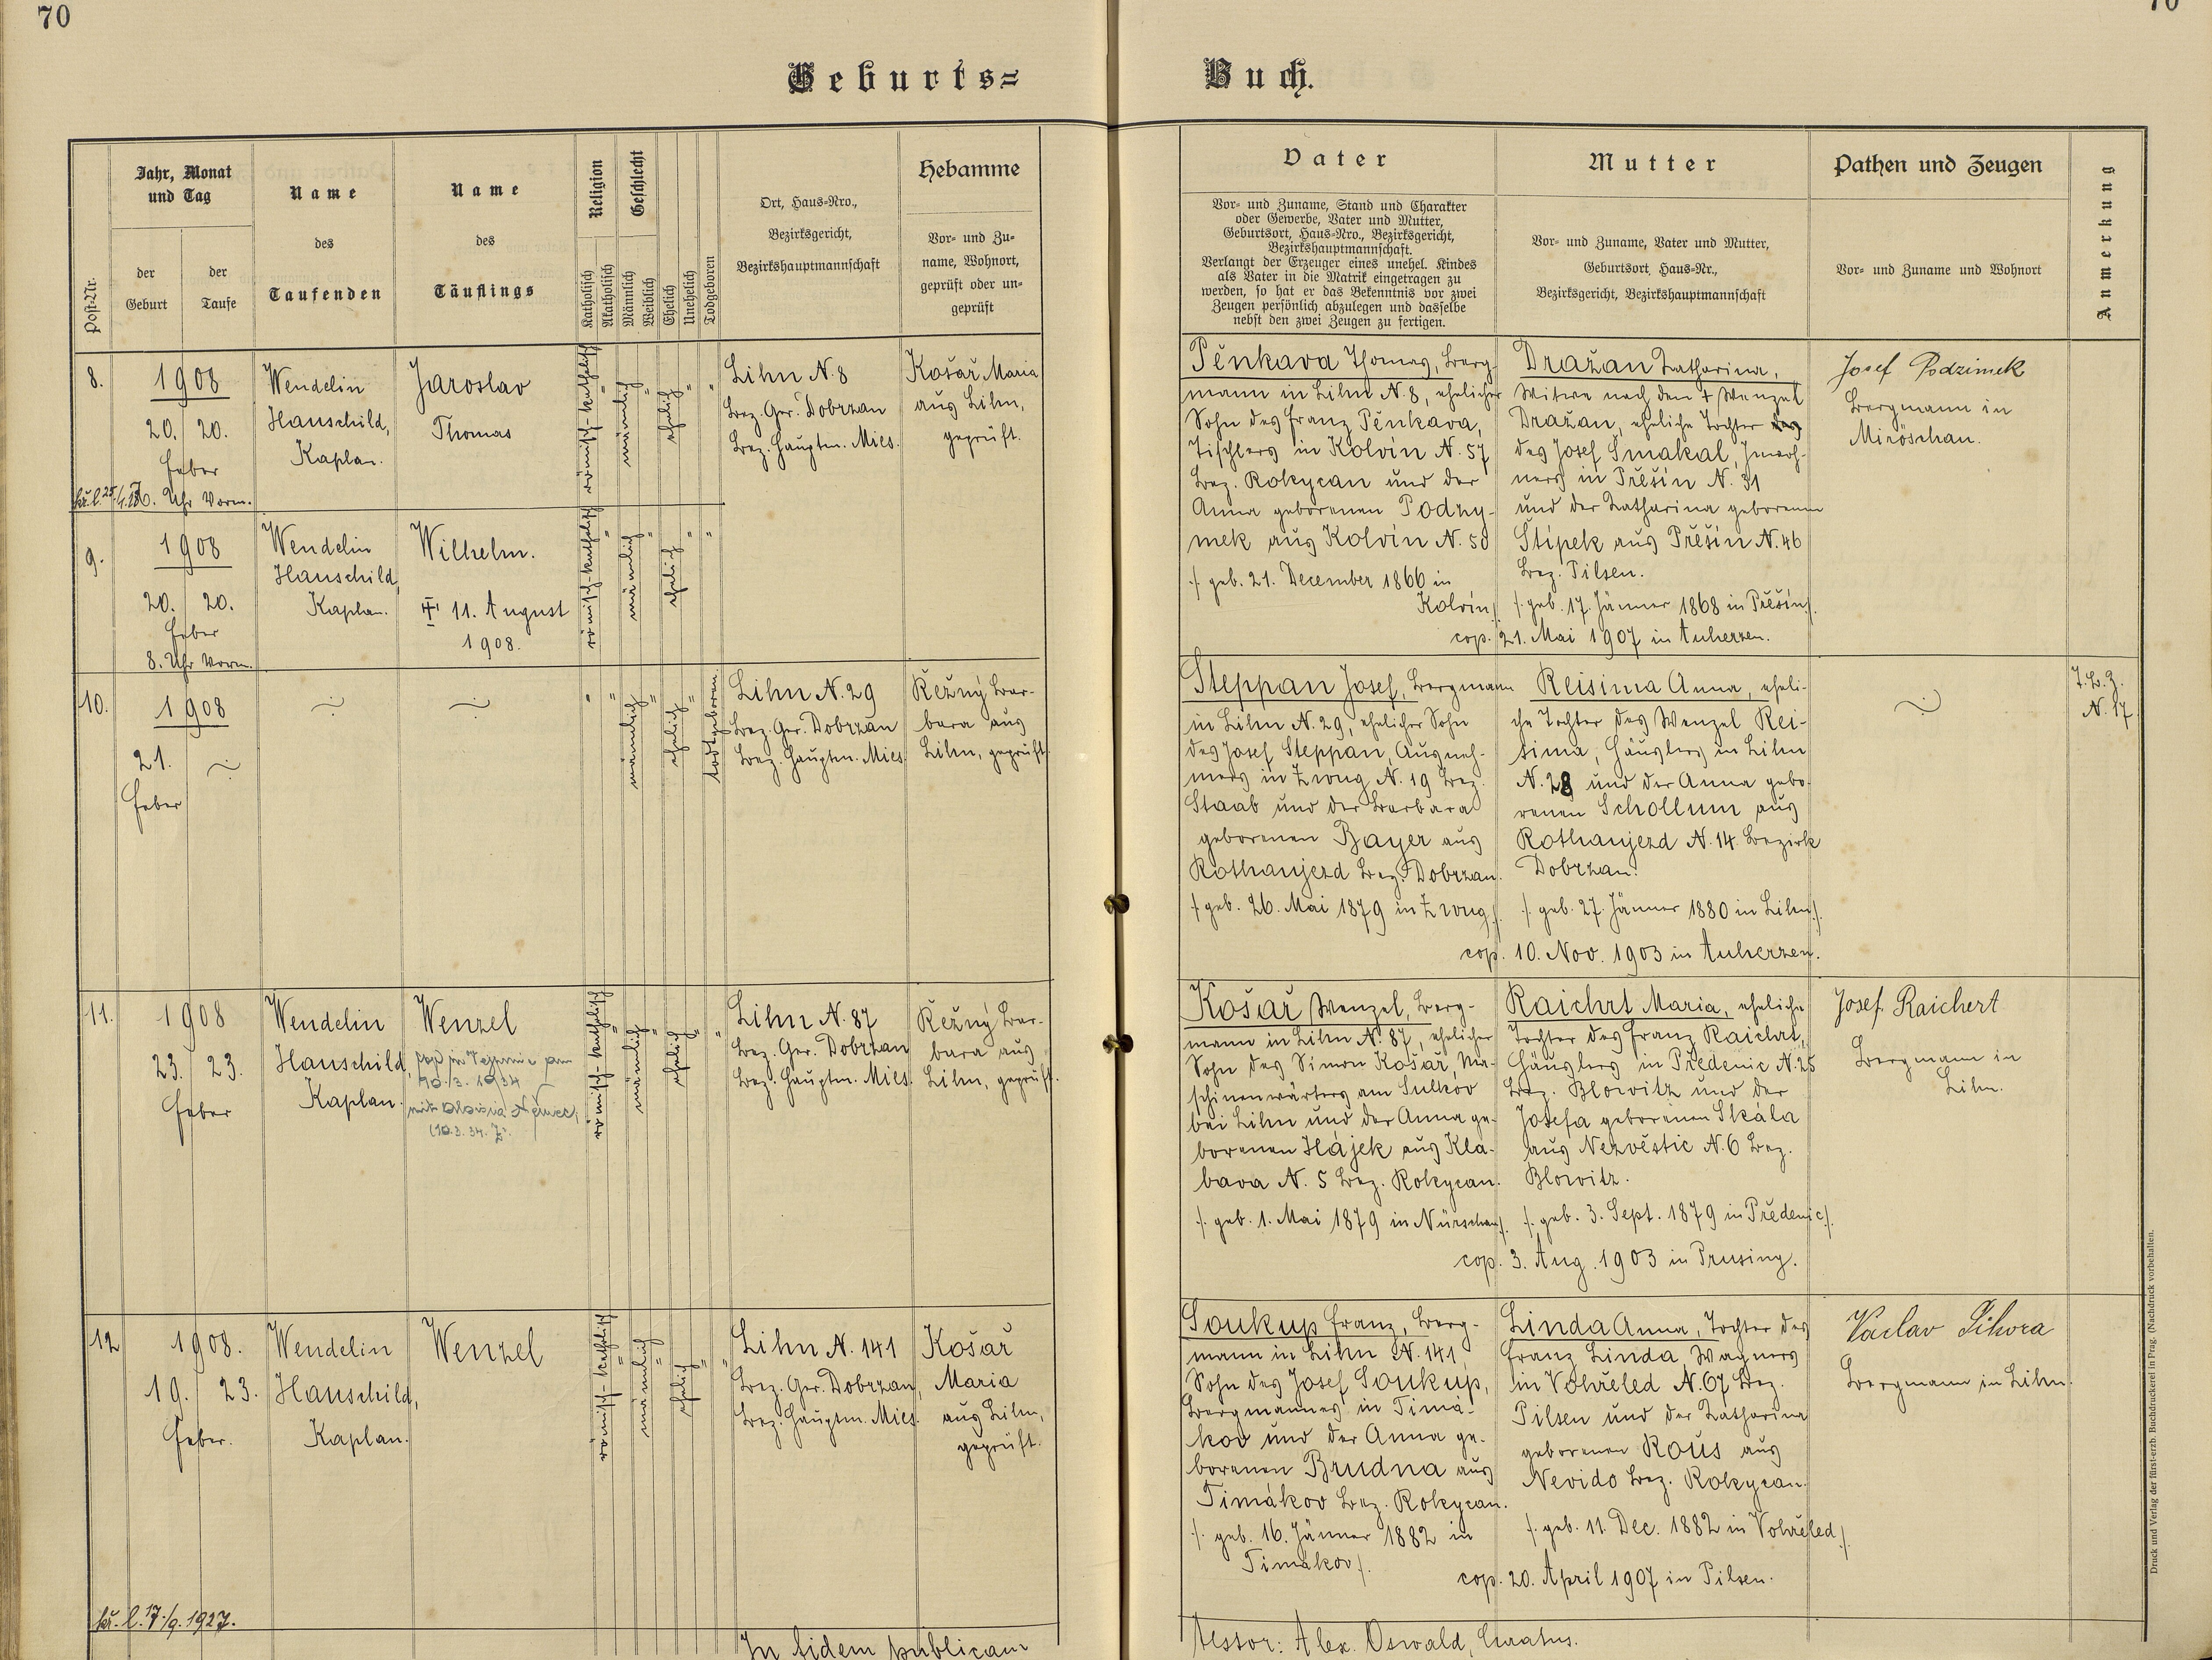 70
70
Geburts=
Buch.
Post-Nr.
Jahr, Monat
und Tag
der
Geburt
der
Taufe
Name
des
Taufenden
Name
des
Täuflings
Religion
Katholisch
Akatholisch
Geschlecht
Männlich
Weiblich
Ehelich
Unehelich
Todgeboren
Ort, Haus=Nro.,
Bezirksgericht,
Bezirkshauptmannschaft
Hebamme
Vor= und Zu=
name, Wohnort,
geprüft oder un=
geprüft
Vater
Vor= und Zuname, Stand und Charakter
oder Gewerbe, Vater und Mutter,
Geburtsort, Haus=Nro., Bezirksgericht,
Bezirkshauptmannschaft.
Verlangt der Erzeuger eines unehel. Kindes
als Vater in die Matrik eingetragen zu
werden, so hat er das Bekenntnis vor zwei
Zeugen persönlich abzulegen und dasselbe
nebst den zwei Zeugen zu fertigen.
Mutter
Vor= und Zuname, Vater und Mutter,
Geburtsort, Haus=Nr.,
Bezirksgericht, Bezirkshauptmannschaft
Pathen und Zeugen
Vor= und Zuname und Wohnort
Anmerkung
8.
1908
20. 20.
Feber
Uhr Vorm.
Wendelin
Hauschild,
Kaplan.
Jaroslav
Thomas
römisch-katholisch
"
männlich
"
ehelich
"
"
Lihn N. 8
Bez. Ger. Dobrzan
Bez. Hauptm. Mies.
Košař Maria
aus Lihn,
geprüft.
Pěnkava Thomas, Berg-
mann in Lihn N. 8, ehelicher
Sohn des Franz Pěnkava,
Tischlers in Kolvín N. 57
Bez. Rokycan und der
Anna geborenen Podzy-
mek aus Kolvín N. 50
/: geb. 21. December 1866 in
Kolvín :/
Dražan Katharina,
Witwe nach dem † Wenzel
Dražan, eheliche Tochter
des Josef Smakal, Inwoh-
ners in Přešín N. 31
und der Katharina geborenen
Štípek aus Přešín N. 46
Bez. Pilsen.
/: geb. 17. Jänner 1868 in Přešín :/.
cop. 21. Mai 1907 in Auherzen.
Josef Podzimek
Bergmann in
Miröschau.
9.
1908
20. 20.
Feber
8. Uhr Vorm.
Wendelin
Hauschild,
Kaplan.
Wilhelm.
† 11. August
1908.
römisch-katholisch
"
männlich
"
ehelich
"
"
10.
1908
21. ~
Feber
~
~
"
"
männlich
"
ehelich
"
todtgeboren
Lihn N. 29
Bez. Ger. Dobrzan
Bez. Hauptm. Mies.
Řežný Bar-
bara aus
Lihn, geprüft.
Steppan Josef, Bergmann
in Lihn N. 29, ehelicher Sohn
des Josef Steppan, Ausneh-
mers in Zwug N. 19 Bez.
Staab und der Barbara
geborenen Bayer aus
Rothaujezd Bez. Dobrzan.
/: geb. 26. Mai 1879 in Zwug :/.
Reisima Anna, eheli-
che Tochter des Wenzel Rei-
sima, Häuslers in Lihn
N. 28 und der Anna gebo-
renen Schollum aus
Rothaujezd N. 14. Bezirk
Dobrzan.
/: geb. 27. Jänner 1880 in Lihn :/.
cop. 10. Nov. 1903 in Auherzen.
~
T. B. Z.
N. 17
11.
1908
23. 23.
Feber
Wendelin
Hauschild,
Kaplan.
Wenzel
10./3. 1934
(10.3.34.
römisch-katholisch
"
männlich
"
ehelich
"
"
Lihn N. 87
Bez. Ger. Dobrzan
Bez. Hauptm. Mies.
Řežný Bar-
bara aus
Lihn, geprüft.
Košař Wenzel, Berg-
mann in Lihn N. 87, ehelicher
Sohn des Simon Košař, Ma-
schinenwärters am Sulkov
bei Lihn und der Anna ge-
borenen Hájek aus Kla-
bava N. 5 Bez. Rokycan.
/: geb. 1. Mai 1879 in Nürschan :/.
Raichrt Maria, eheliche
Tochter des Franz Raichrt,
Häuslers in Předenic N. 25
Bez. Blowitz und der
Josefa geborenen Skála
aus Nezvěstic N. 6 Bez.
Blowitz.
/: geb. 3. Sept. 1879 in Předenic :/.
cop. 3. Aug. 1903 in Prusiny.
Josef Raichert
Bergmann in
Lihn.
12
1908.
19. 23.
Feber.
kř. l. 17./9. 1927.
Wendelin
Hauschild,
Kaplan.
Wenzel
römisch-katholisch
"
männlich
"
ehelich
"
"
Lihn N. 141
Bez. Ger. Dobrzan,
Bez. Hauptm. Mies.
Košař
Maria
aus Lihn,
geprüft.
Soukup Franz, Berg-
mann in Lihn N. 141,
Sohn des Josef Soukup,
Bergmannes in Timá-
kov und der Anna ge-
borenen Brudna aus
Timákov Bez. Rokycan.
/: geb. 16. Jänner 1882 in
Timákov :/.
Linda Anna, Tochter des
Franz Linda, Wagners
in Vohřeled N. 67 Bez.
Pilsen und der Katharina
geborenen Rouš aus
Nevido Bez. Rokycan.
/: geb. 11. Dec. 1882 in Vohřeled :/.
cop. 20. April 1907 in Pilsen.
Vaclav Sikora
Bergmann in Lihn.
In fidem publicam
Testor: Alex. Oswald, Curatus.
Druck und Verlag der fürst-erzb. Buchdruckerei in Prag. (Nachdruck vorbehalten.